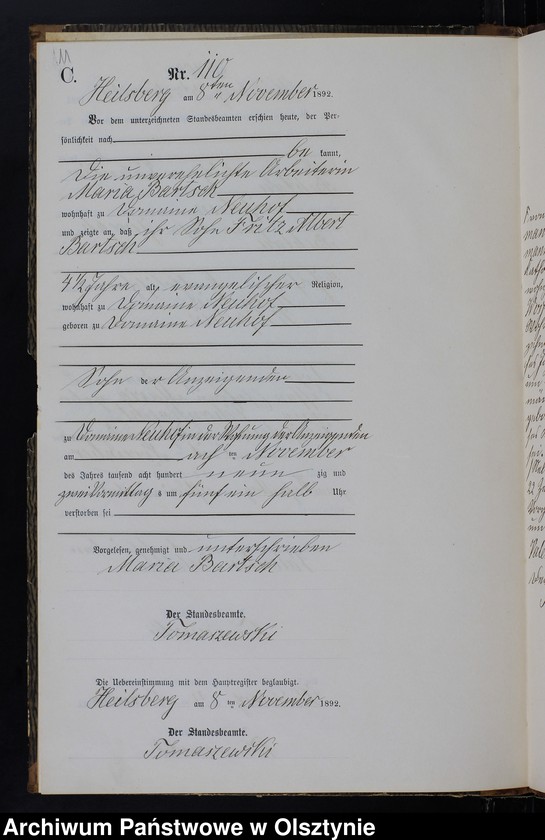 111
C.
Nr. 110
Heilsberg am 8ten November 1892.
Vor dem unterzeichneten Standesbeamten erschien heute, der Per-
sönlichkeit nach
be kannt,
Die unverehelichte Arbeiterin
Maria Bartsch
wohnhaft zu Domaine Neuhof
und zeigte an, daß ihr Sohn Fritz Albert
Bartsch
4 1/2 Jahre alt, evangelischer Religion,
wohnhaft zu Domaine Neuhof
geboren zu Domaine Neuhof
Sohn der Anzeigenden
zu Domaine Neuhof in der Wohnung der Anzeigenden
am acht ten November
des Jahres tausend acht hundert neun zig und
zwei Vormittag s um fünf ein halb Uhr
verstorben sei
Vorgelesen, genehmigt und unterschrieben
Maria Bartsch
Der Standesbeamte.
Tomaszewski
Die Uebereinstimmung mit dem Hauptregister beglaubigt.
Heilsberg am 8ten November 1892.
Der Standesbeamte.
Tomaszewski
Archiwum Państwowe w Olsztynie